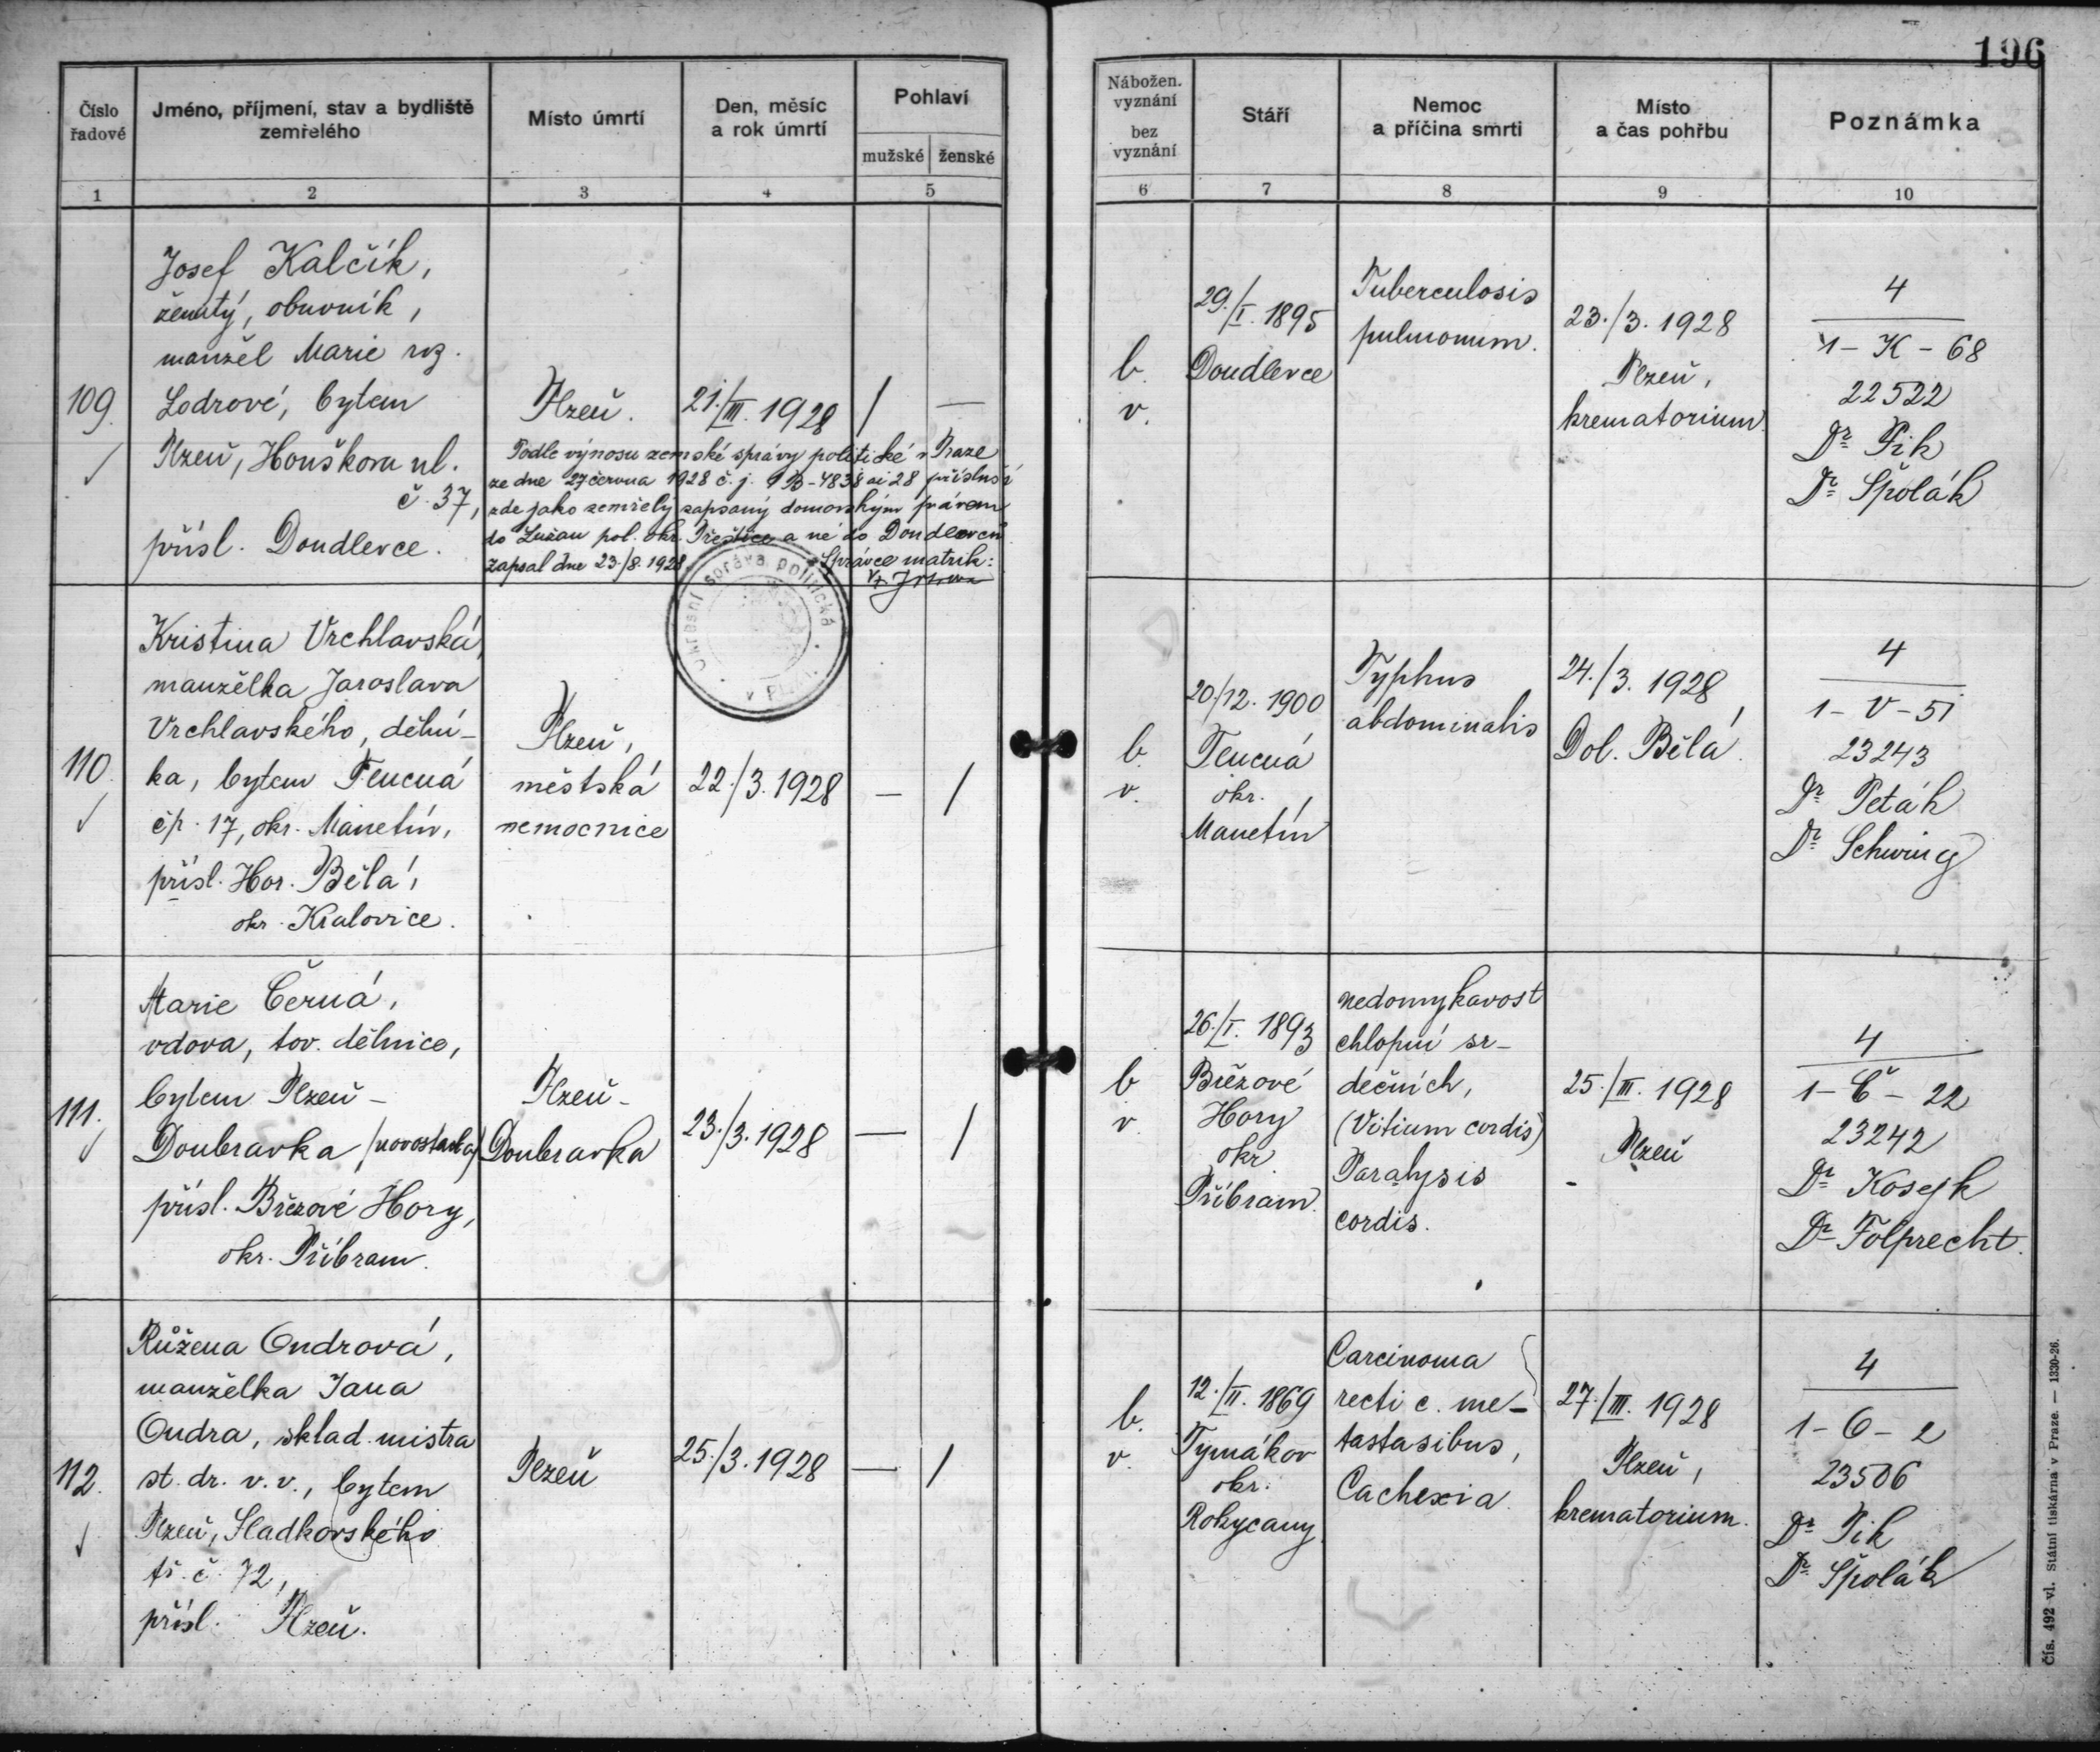 196
Číslo
řadové
Jméno, příjmení, stav a bydliště
zemřelého
Místo úmrtí
Den, měsíc
a rok úmrtí
Pohlaví
mužské ženské
Nábožen.
vyznání
bez
vyznání
Stáří
Nemoc
a příčina smrti
Místo
a čas pohřbu
Poznámka
1 2 3 4 5 6 7 8 9 10
109.
Josef Kalčík,
ženatý, obuvník,
manžel Marie roz.
Lodrové, bytem
Plzeň, Houškova ul.
č. 37,
přísl. Doudlevce.
Plzeň.
21./III. 1928
/ —
Podle výnosu zemské správy politické v Praze
ze dne 27 června 1928 č. j. ai 28 přísluší
zde jako zemřelý zapsaný domovským právem
do Lužan pol. okr. Přeštice a né do Doudlevců
zapsal dne 23./8. 1928 Správce matrik:
Okresní správa politická
b.
v.
29./I. 1895
Doudlevce
Tuberculosis
pulmonum.
23./3. 1928
Plzeň,
krematorium.
4
1 - K - 68
22522
Dr Pik
Dr Špolák
110.
Kristina Vrchlavská,
manželka Jaroslava
Vrchlavského, dělní-
ka, bytem Tlucná
čp. 17, okr. Manetín,
přísl. Hor. Bělá,
okr. Kralovice.
Plzeň,
městská
nemocnice
22./3. 1928
— /
b.
v.
20/12. 1900
Tlucná
okr.
Manetín
Typhus
abdominalis
24./3. 1928,
Dol. Bělá.
4
1 - V - 51
23243
Dr Peták
Dr Schwing
111.
Marie Černá,
vdova, tov. dělnice,
bytem Plzeň -
Doubravka (novostavba)
přísl. Březové Hory,
okr. Příbram.
Plzeň -
Doubravka
23./3. 1928
— /
b
v.
26./I. 1893
Březové
Hory
okr.
Příbram.
nedomykavost
chlopní sr-
dečních,
(Vitium cordis)
Paralysis
cordis.
25./III. 1928
Plzeň
4
1 - Č - 22
23242
Dr Kosejk
Dr Folprecht.
112.
Růžena Ondrová,
manželka Jana
Ondra, sklad. mistra
st. dr. v. v., bytem
Plzeň, Sladkovského
tř. č. 72,
přísl. Plzeň.
Plzeň
25./3. 1928
— /
b.
v.
12./II. 1869
Tymákov
okr.
Rokycany
Carcinoma
recti c. me-
tastasibus,
Cachexia.
27./III. 1928
Plzeň,
krematorium.
4
1 - O - 2
23506
Dr Pik
Dr Špolák
Čís. 492 vl. Státní tiskárna v Praze. — 1330-26.